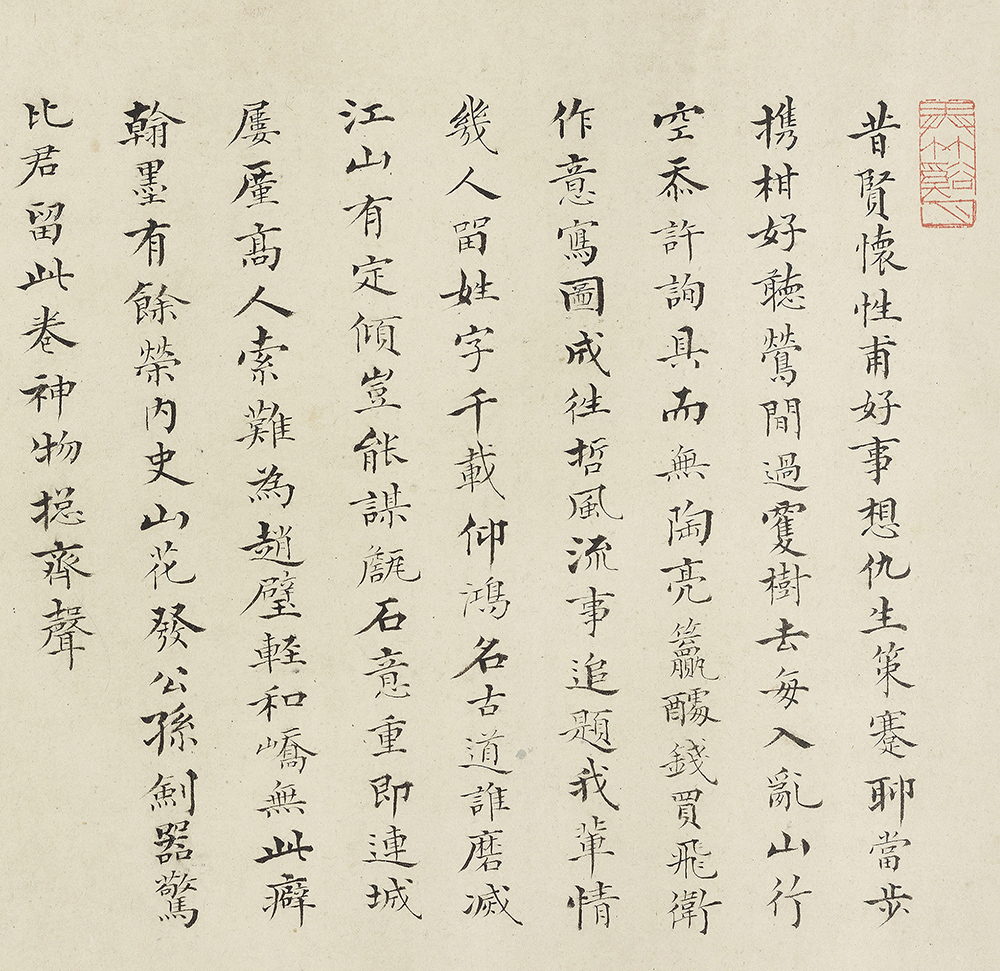 昔賢懷性甫好事想仇生策蹇聊當步
携柑好聽鶯間過雙樹去每入亂山行
空忝許詢具而無陶亮籯醵錢買飛衛
作意寫圖成徃哲風流事追題我輩情
幾人留姓字千載仰鴻名古道誰磨滅
江山有定傾豈能謀甔石意重即連城
屢厪高人索難為趙璧輕和嶠無此癖
翰墨有餘榮內史山花發公孫劍器驚
比君留此卷神物摠齊聲